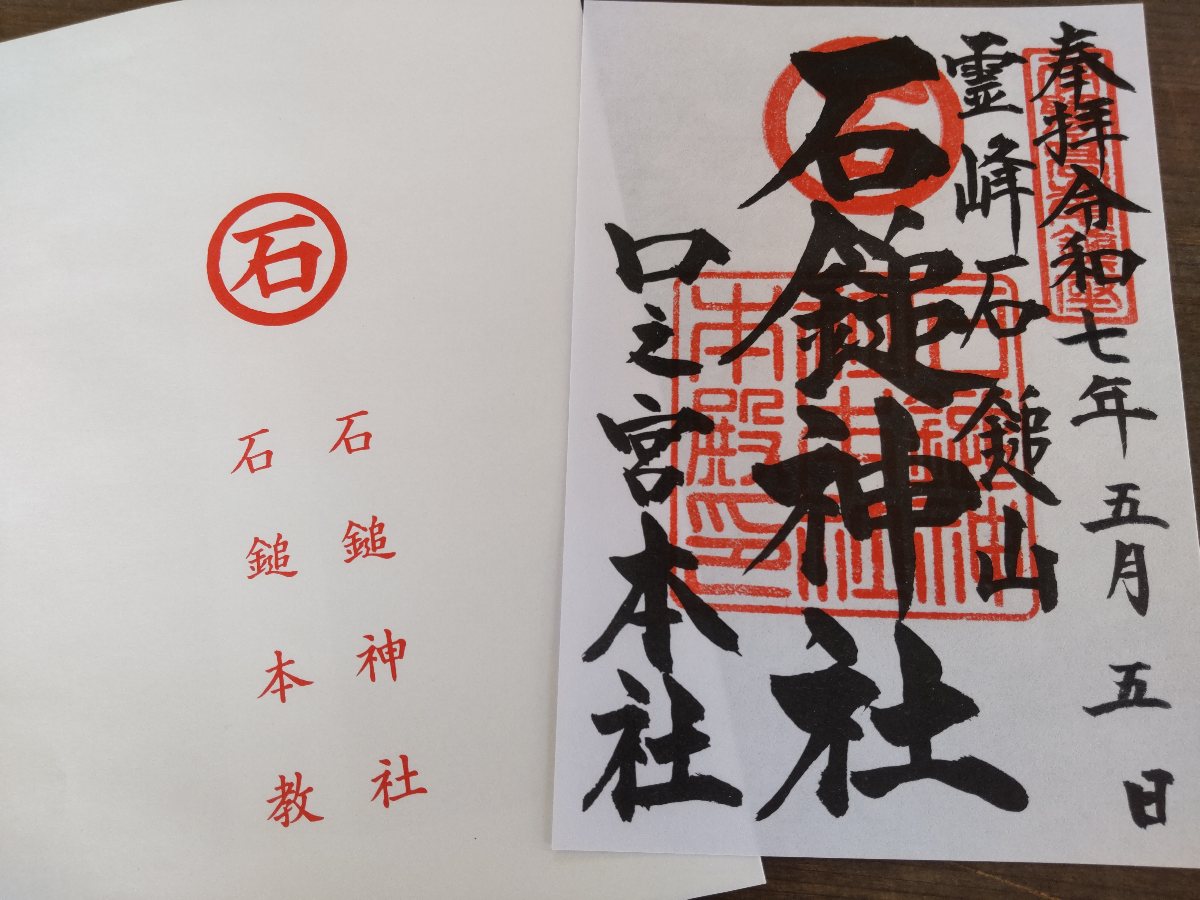 奉拝令和七年五月五日
霊峰石鎚山
石鎚神社
口之宮本社
石鎚神社
本社
本殿印
石
石鎚神社
石鎚本教